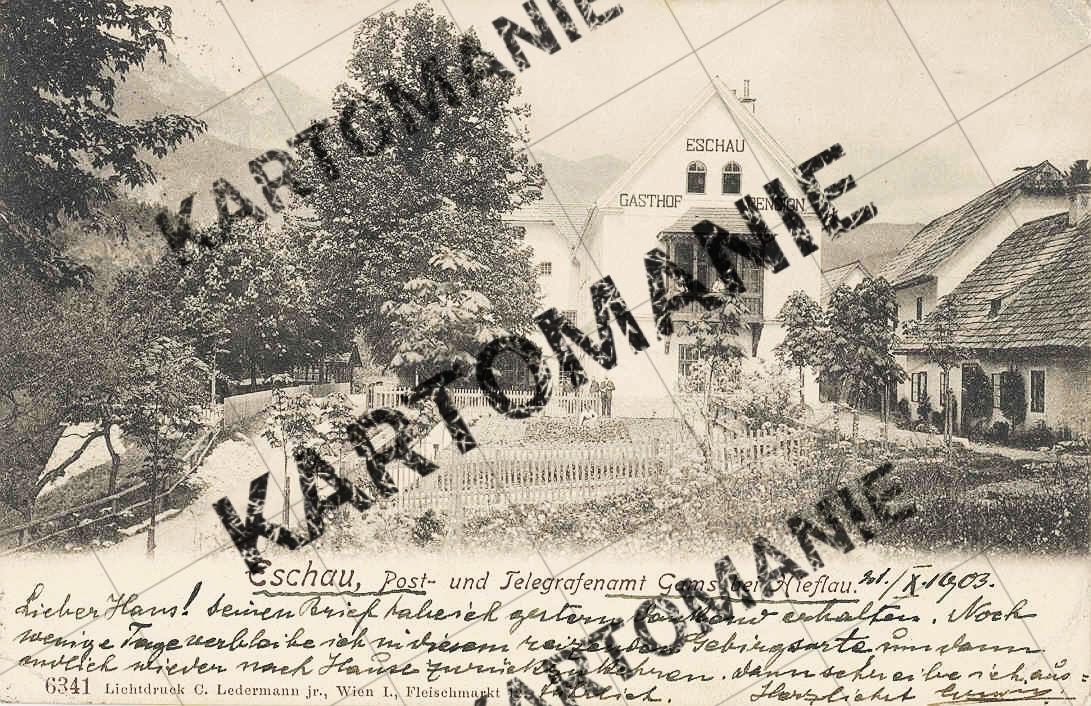 KARTOMANIE
KARTOMANIE
KARTOMANIE
ESCHAU
GASTHOF PENSION
Eschau, Post- und Telegrafenamt Gams bei Hieflau. 21./X. 1903.
Lieber Hans! Deinen Brief habe ich gestern dankend erhalten. Noch
wenige Tage verbleibe ich in diesem reizenden Gebirgsorte um dann
endlich wieder nach Hause zurückzukehren. Dann schreibe ich aus=
6341 Lichtdruck C. Ledermann jr., Wien I., Fleischmarkt führlich. Herzlichst